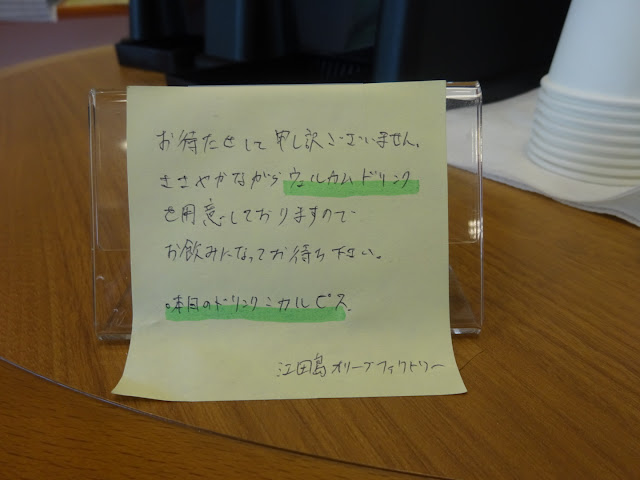 お待たせして申し訳ございません。
ささやかながらウェルカムドリンク
を用意しておりますので
お飲みになってお待ち下さい。
。本日のドリンク ミカルピス
江田島オリーブファクトリー